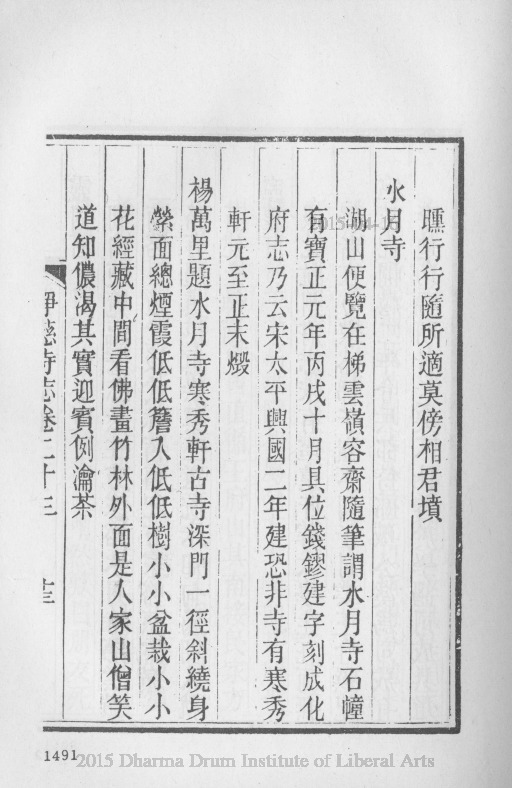 曛行行隨所適莫傍相君墳
水月寺
湖山便覽在梯雲嶺容齋隨筆謂水月寺石幢
有寶正元年丙戌十月具位錢鏐建字刻成化
府志乃云宋太平興國二年建恐非寺有寒秀
軒元至正末燬
楊萬里題水月寺寒秀軒古寺深門一徑斜繞身
縈面總煙霞低低簷入低低樹小小盆栽小小
花經藏中間看佛畫竹林外面是人家山僧笑
道知儂渴其實迎賓例瀹茶
淨慈寺志卷二十三
1491
2015 Dharma Drum Institute of Liberal Arts